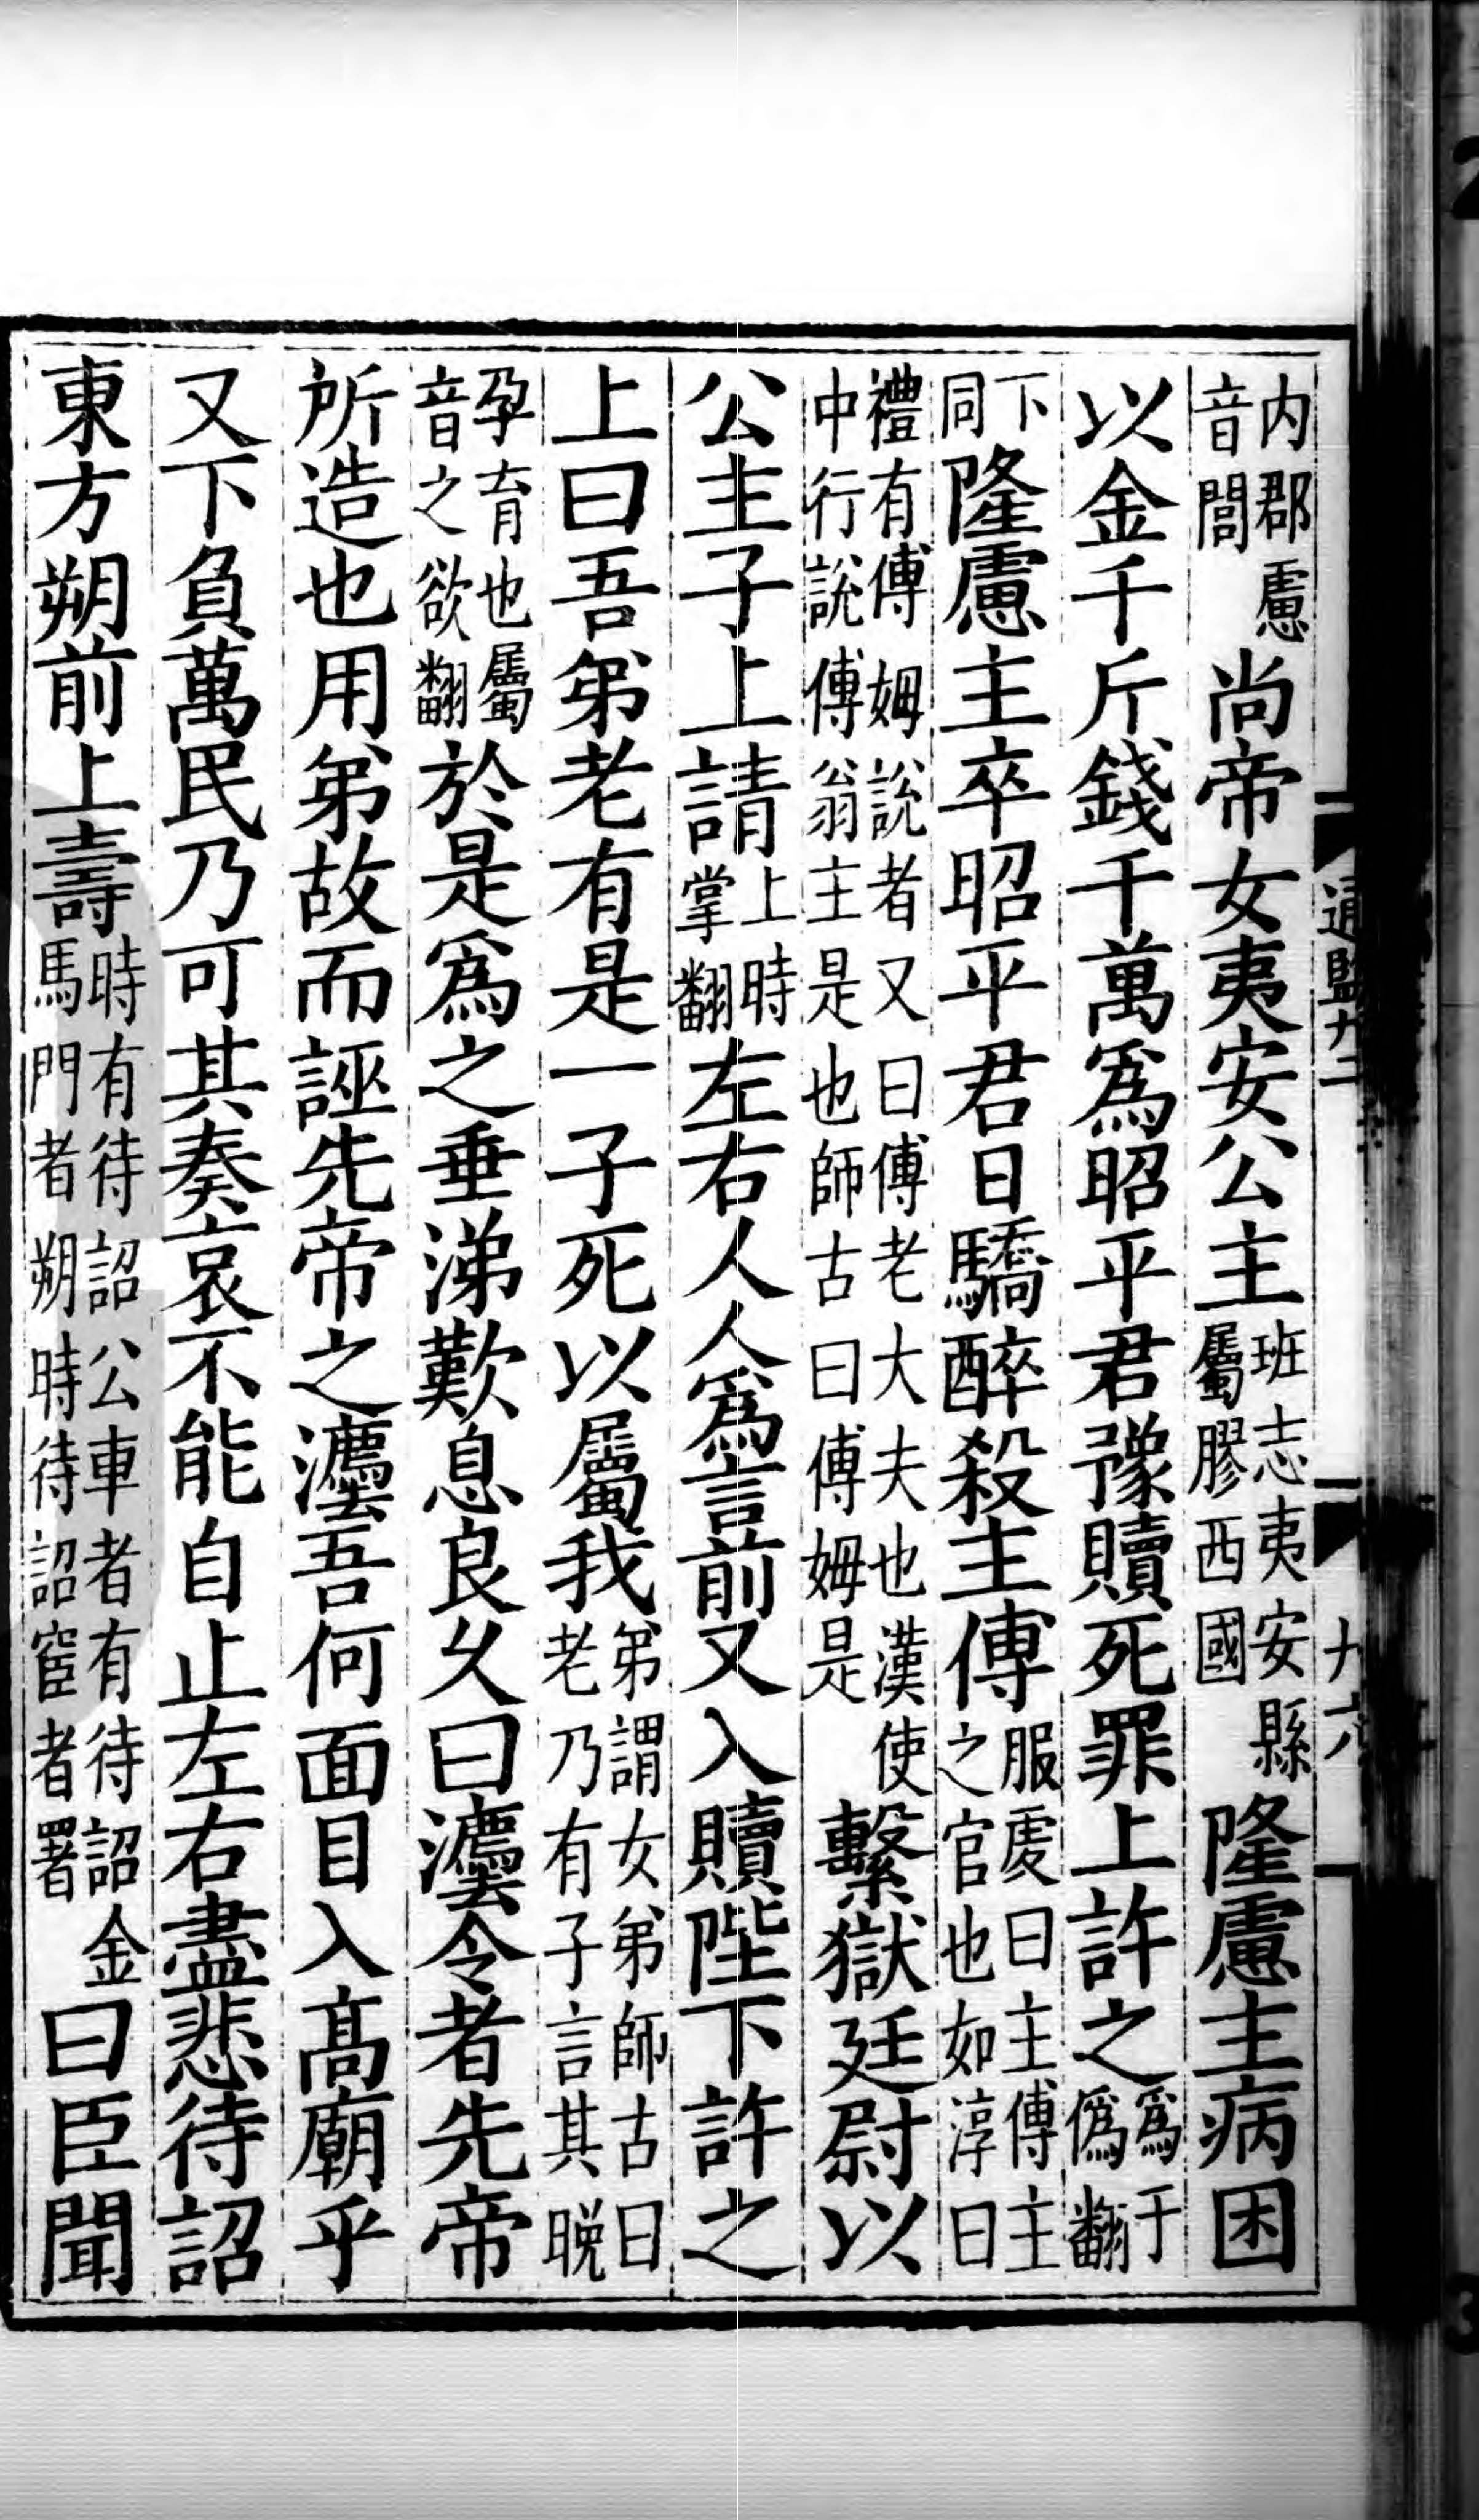 内郡慮音閭尚帝女夷安公主班志夷安縣屬膠西國隆慮主病困
以金千斤錢千萬爲昭平君豫贖死罪上許之爲于僞翻
下同隆慮主卒昭平君日驕醉殺主傅服虔曰主傅主之官也如淳曰
禮有傅姆說者又曰傅老大夫也漢使中行說傅翁主是也師古曰傅姆是繫獄廷尉以
公主子上請上時掌翻左右人人爲言前又入贖陛下許之
上曰吾弟老有是一子死以屬我弟謂女弟師古曰老乃有子言其晚
孕育也屬音之欲翻於是爲之垂涕歎息良久曰灋令者先帝
所造也用弟故而誣先帝之灋吾何面目入髙廟乎
又下負萬民乃可其奏哀不能自止左右盡悲待詔
東方朔前上壽時有待詔公車者有待詔金馬門者朔時待詔宦者署曰臣聞